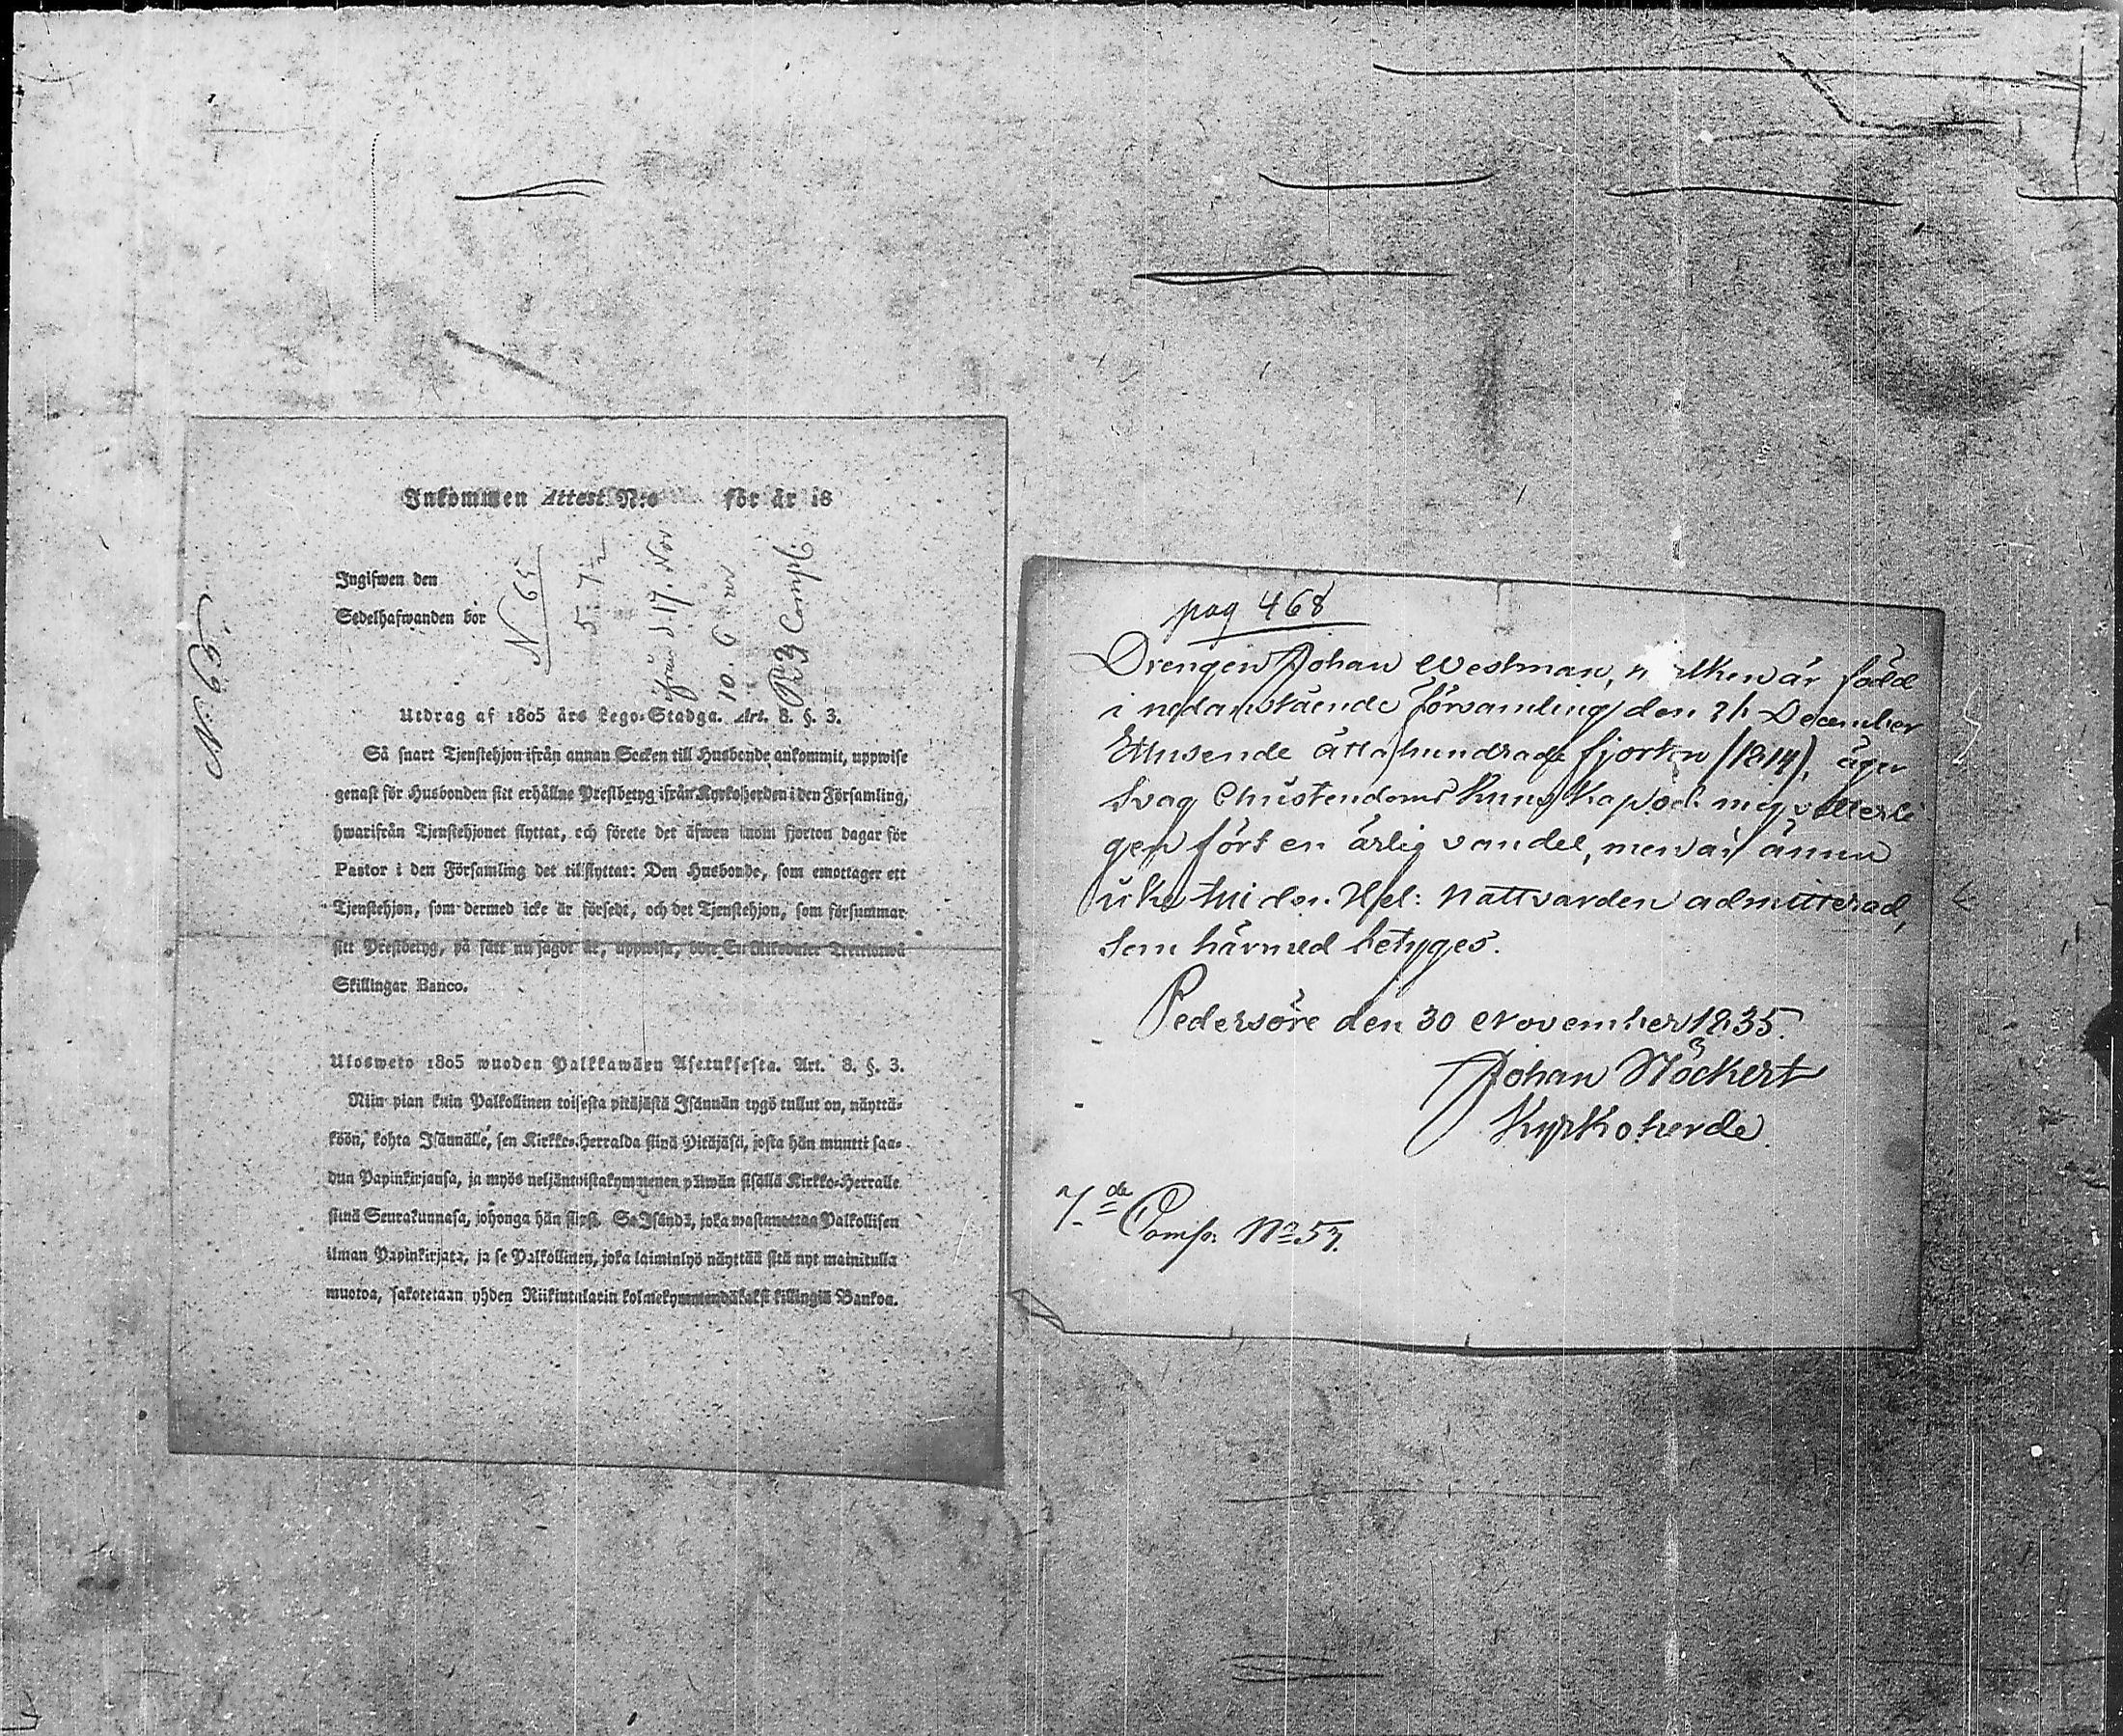 Inkommen Attest N:o för år 18
Ingifwen den
Sedelhafwanden bor
N 65
5. 7½
ifrån d. 17. Nov
10. 6
Comp.
Utdrag af 1805 års Lego-Stadga. Art. 8. §. 3.
Så snart Tjenstehjon ifrån annan Socken till Husbonde ankommit, uppwise
genast för Husbonden sitt erhållne Prestbetyg ifrån Kyrkoherden i den Församling,
hwarifrån Tjenstehjonet flyttat, och förete det äfwen inom fjorton dagar för
Pastor i den Församling det tillflyttat: Den Husbonde, som emottager ett
Tjenstehjon, som dermed icke är försedt, och det Tjenstehjon, som försummar
sitt Prestbetyg, på sätt nu sagdt är, uppwisa, böte En Riksdaler Trettiotwå
Skillingar Banco.
Ulosweto 1805 wuoden Palkkawäen Asetuksesta. Art. 8. §. 3.
Niin pian kuin Palkollinen toisesta pitäjästä Isännän tygö tullut on, näyttä-
köön, kohta Isännälle, sen Kirkko-Herralda siinä Pitäjäsä, josta hän muutti saa-
dun Papinkirjansa, ja myös neljäntoistakymmenen päiwän sisällä Kirkko-Herralle
siinä Seurakunnasa, johonga hän siirsi. Se Isändä, joka wastanottaa Palkollisen
ilman Papinkirjata, ja se Palkollinen, joka laiminlyö näyttää sitä nyt mainitulla
muotoa, sakotetaan yhden Riikintalarin kolmekymmendäkaksi killingiä Bankoa.
pag 468
Drengen Johan Westman, hvilken är född
i nedanstående Församling den 26 December
Ettusende åttahundrade fjorton (1814), äger
svag Christendoms kunskap och mig vetterli
gen fört en ärlig vandel, men är ännu
icke till den H. el: Nattvarden admitterad,
som härmed betyges.
Pedersöre den 30 November 1835.
Johan Höckert
Kyrkoherde.
7de Comp: No 57.